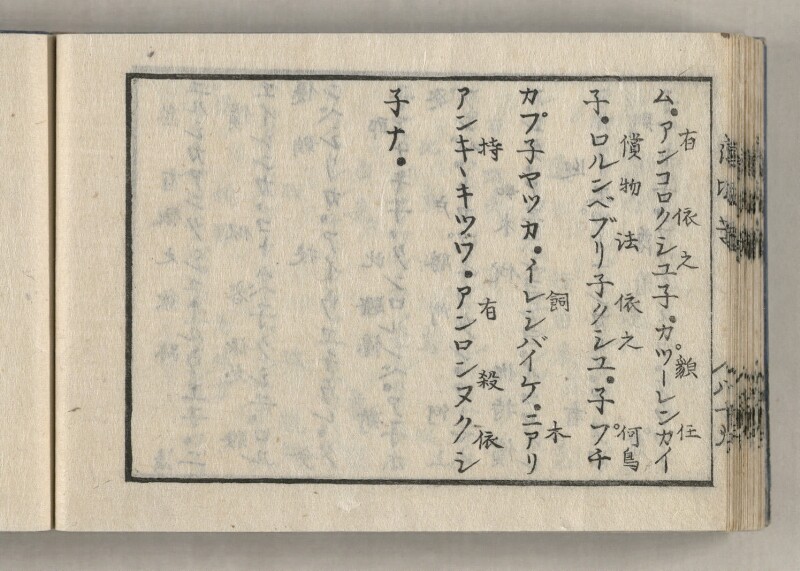 有 依之 貌 任
ム。アンコロクシユ子。カツ゚ーレンカイ
償物法 依之 何鳥
子。ロルンベブリ子クシユ。子プチ
飼 木
カプ子ヤツカ。イレシバイケ。ニアリ
持 有 殺 依
アンキヽキツヴ。アンロンヌクシ
子ナ。